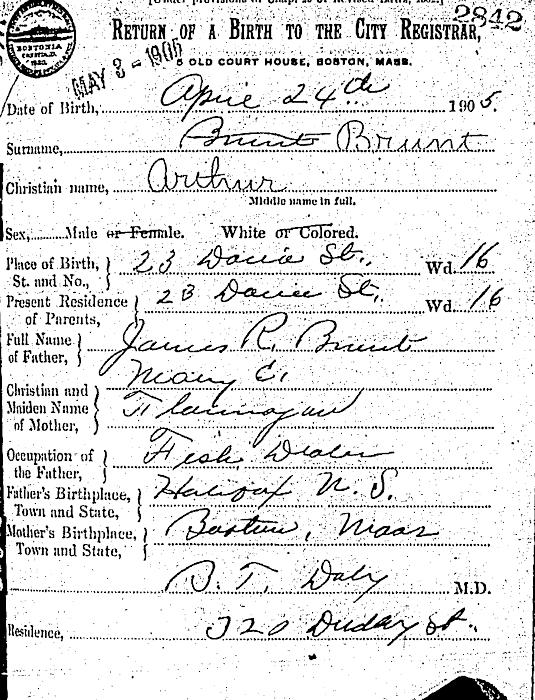 2842
RETURN OF A BIRTH TO THE CITY REGISTRAR,
BOSTONIA
MAY 3 - 1905
OLD COURT HOUSE, BOSTON, MASS.
Date of Birth, April 24th 1905.
Surname, Brunt Brunt
Christian name, Arthur
Middle name in full.
Sex, Male or Female. White or Colored.
Place of Birth, St. and No., 23 Dacia St., Wd. 16
Present Residence of Parents, 23 Dacia St., Wd. 16
Full Name of Father, James R. Brunt
Christian and Maiden Name of Mother, Mary E.
Flannagan
Occupation of the Father, Fish Dealer
Father's Birthplace, Town and State, Halifax N. S.
Mother's Birthplace, Town and State, Boston, Mass
B. T. Daly M.D.
Residence, 320 Dudley St.